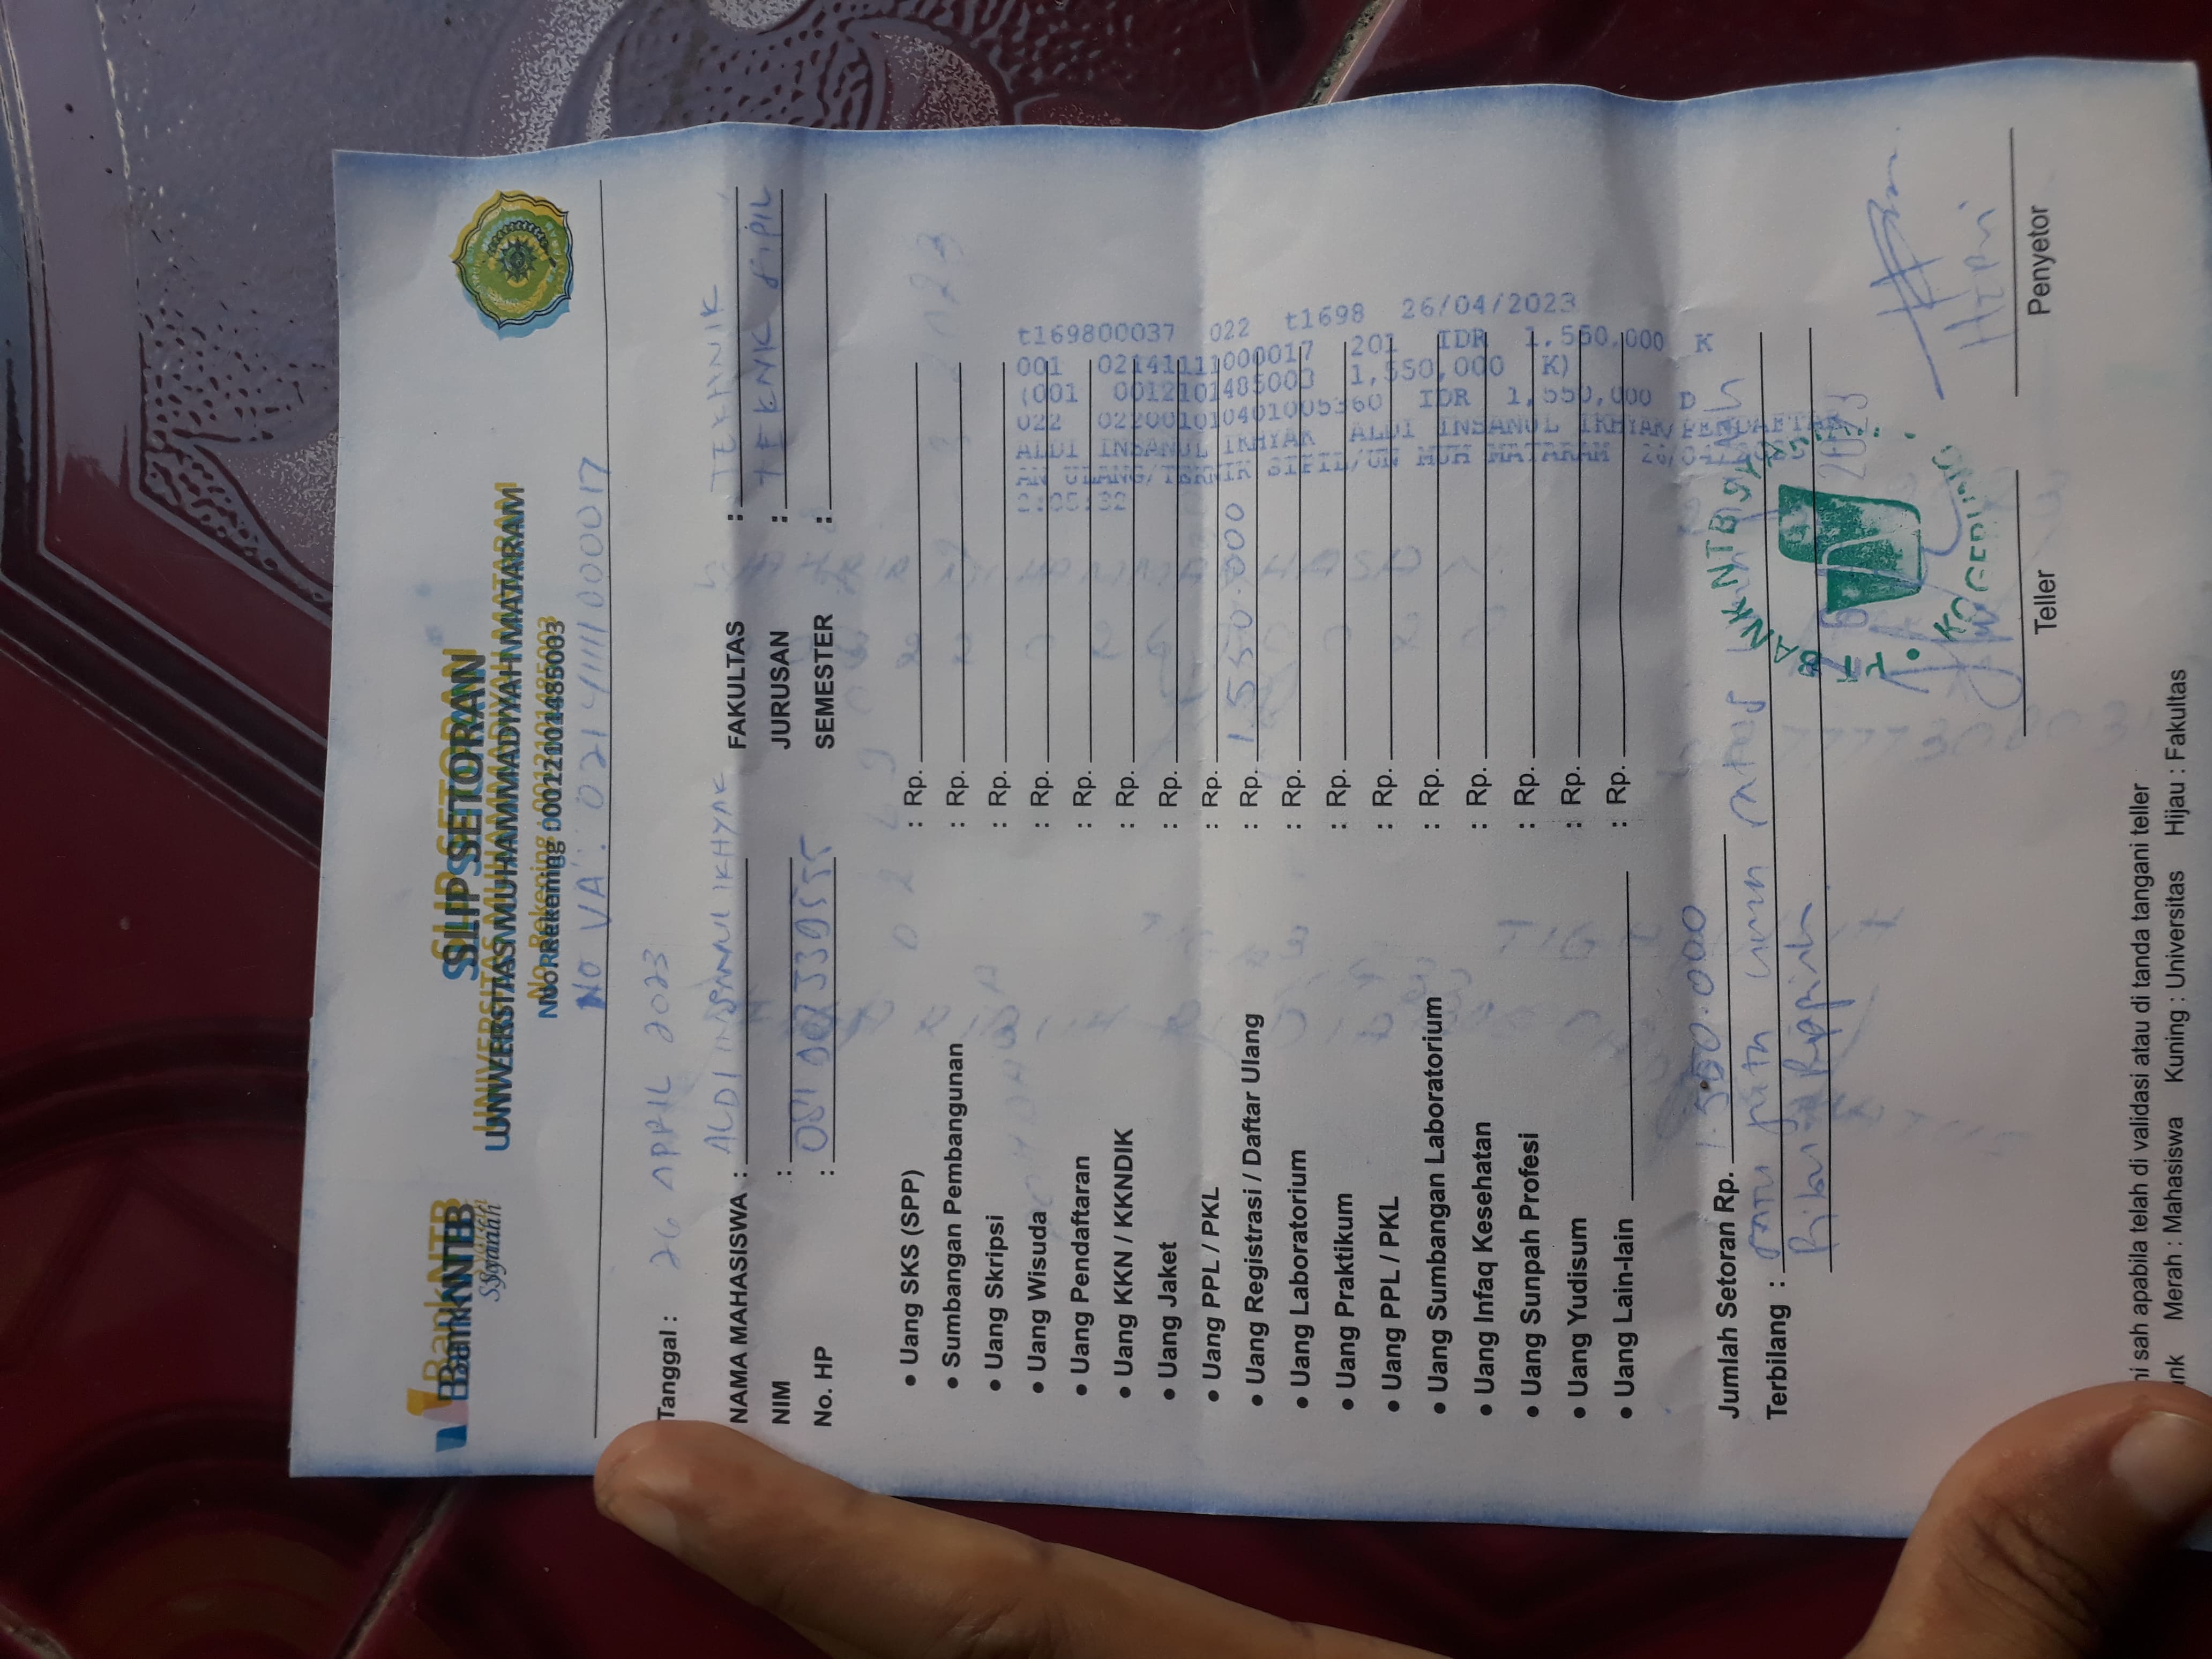 BankNTB
Syariah
SLIP SETORAN
UNIVERSITAS MUHAMMADIYAH MATARAM
No Rekening : 0012101485003
No VA : 02141111000017
Tanggal : 26 APRIL 2023
NAMA MAHASISWA : ALDI INSANUL IKHYAK
NIM :
No. HP :
FAKULTAS : TEKHNIK
JURUSAN : TEKNK SIPIL
SEMESTER :
• Uang SKS (SPP) : Rp.
• Sumbangan Pembangunan : Rp.
• Uang Skripsi : Rp.
• Uang Wisuda : Rp.
• Uang Pendaftaran : Rp.
• Uang KKN / KKNDIK : Rp.
• Uang Jaket : Rp.
• Uang PPL / PKL : Rp.
• Uang Registrasi / Daftar Ulang : Rp. 1.550.000
• Uang Laboratorium : Rp.
• Uang Praktikum : Rp.
• Uang PPL / PKL : Rp.
• Uang Sumbangan Laboratorium : Rp.
• Uang Infaq Kesehatan : Rp.
• Uang Sunpah Profesi : Rp.
• Uang Yudisum : Rp.
• Uang Lain-lain : Rp.
t169800037 022 t1698 26/04/2023
001 02141111000017 201 IDR 1.550,000 K
(001 0012101485003 1,550,000 K)
022 022001010401005360 IDR 1,550,000 D
ALDI INSANUL IKHYAK ALDI INSANUL IKHYAK/PENDAFTAR
AN ULANG/TEKNIK SIPIL/UN MUH MATARAM 26/04/
Jumlah Setoran Rp. 1.550.000
Terbilang : satu juta lima ratus lima puluh
Ribu Rupiah
BANK NTB SYARIAH
2023
Teller
HERI
Penyetor
ni sah apabila telah di validasi atau di tanda tangani teller
nk Merah : Mahasiswa Kuning : Universitas Hijau : Fakultas